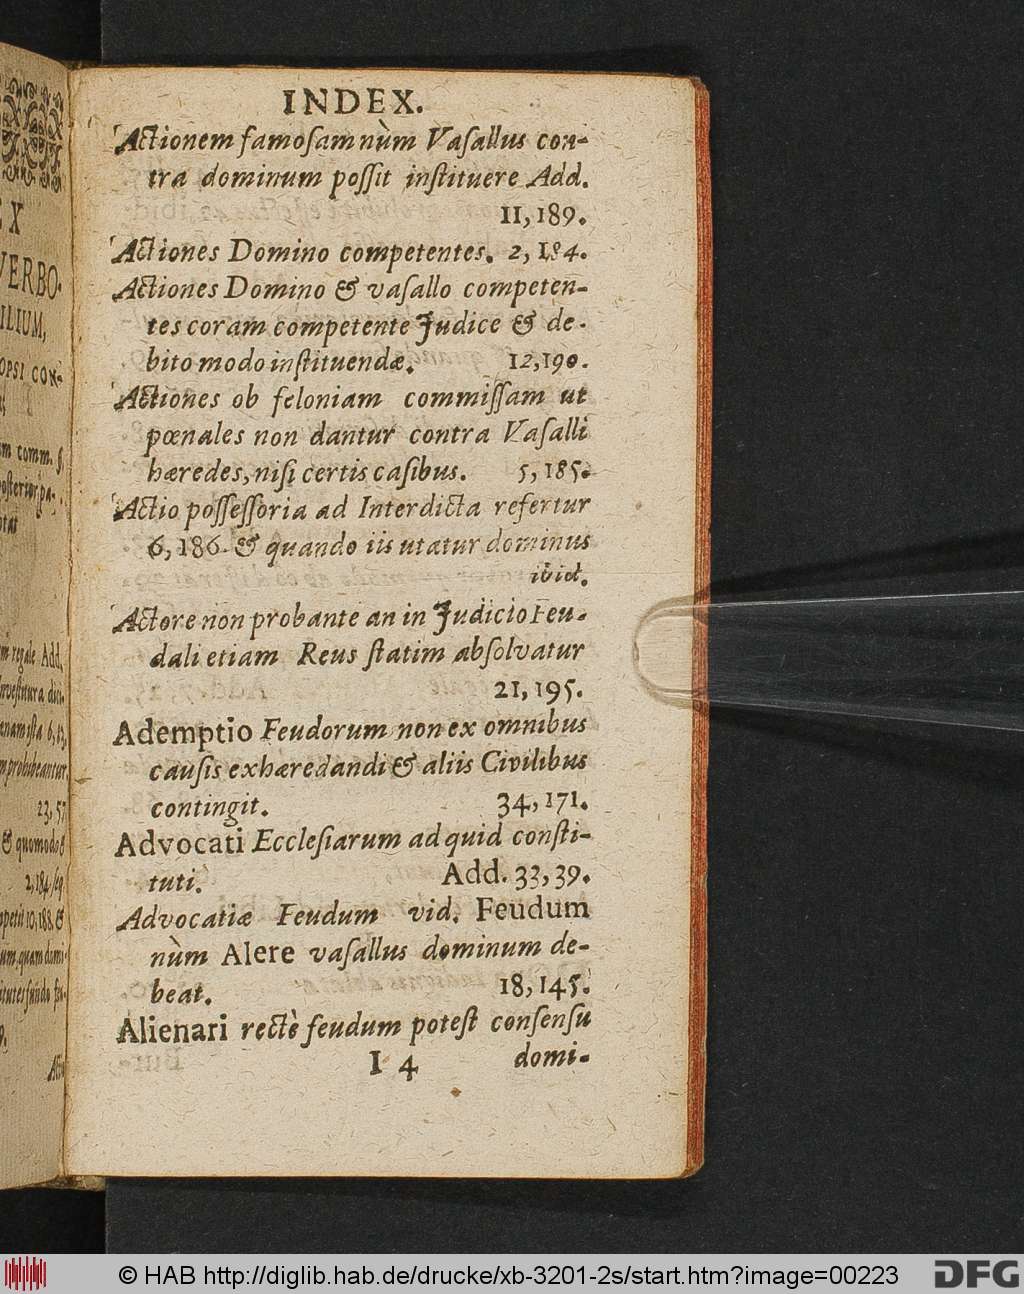 INDEX.
Actionem famosam nùm Vasallus con-
tra dominum possit instituere Add.
11,189.
Actiones Domino competentes. 2, 184.
Actiones Domino & vasallo competen-
tes coram competente Judice & de-
bito modo instituendæ. 12,190.
Actiones ob feloniam commissam ut
pœnales non dantur contra Vasalli
hæredes, nisi certis casibus. 5,185.
Actio possessoria ad Interdicta refertur
6,186. & quando iis utatur dominus
ibid.
Actore non probante an in Judicio Feu-
dali etiam Reus statim absolvatur
21,195.
Ademptio Feudorum non ex omnibus
causis exhæredandi & aliis Civilibus
contingit. 34,171.
Advocati Ecclesiarum ad quid consti-
tuti. Add. 33,39.
Advocatiæ Feudum vid. Feudum
nùm Alere vasallus dominum de-
beat. 18,145.
Alienari rectè feudum potest consensu
I 4 domi-
EX
VERBO-
ILIUM,
OPSI CON-
m comm. §.
m regale Add.
23,57
& quomodo
2,184 seq
um, quam domi-
© HAB http://diglib.hab.de/drucke/xb-3201-2s/start.htm?image=00223
DFG